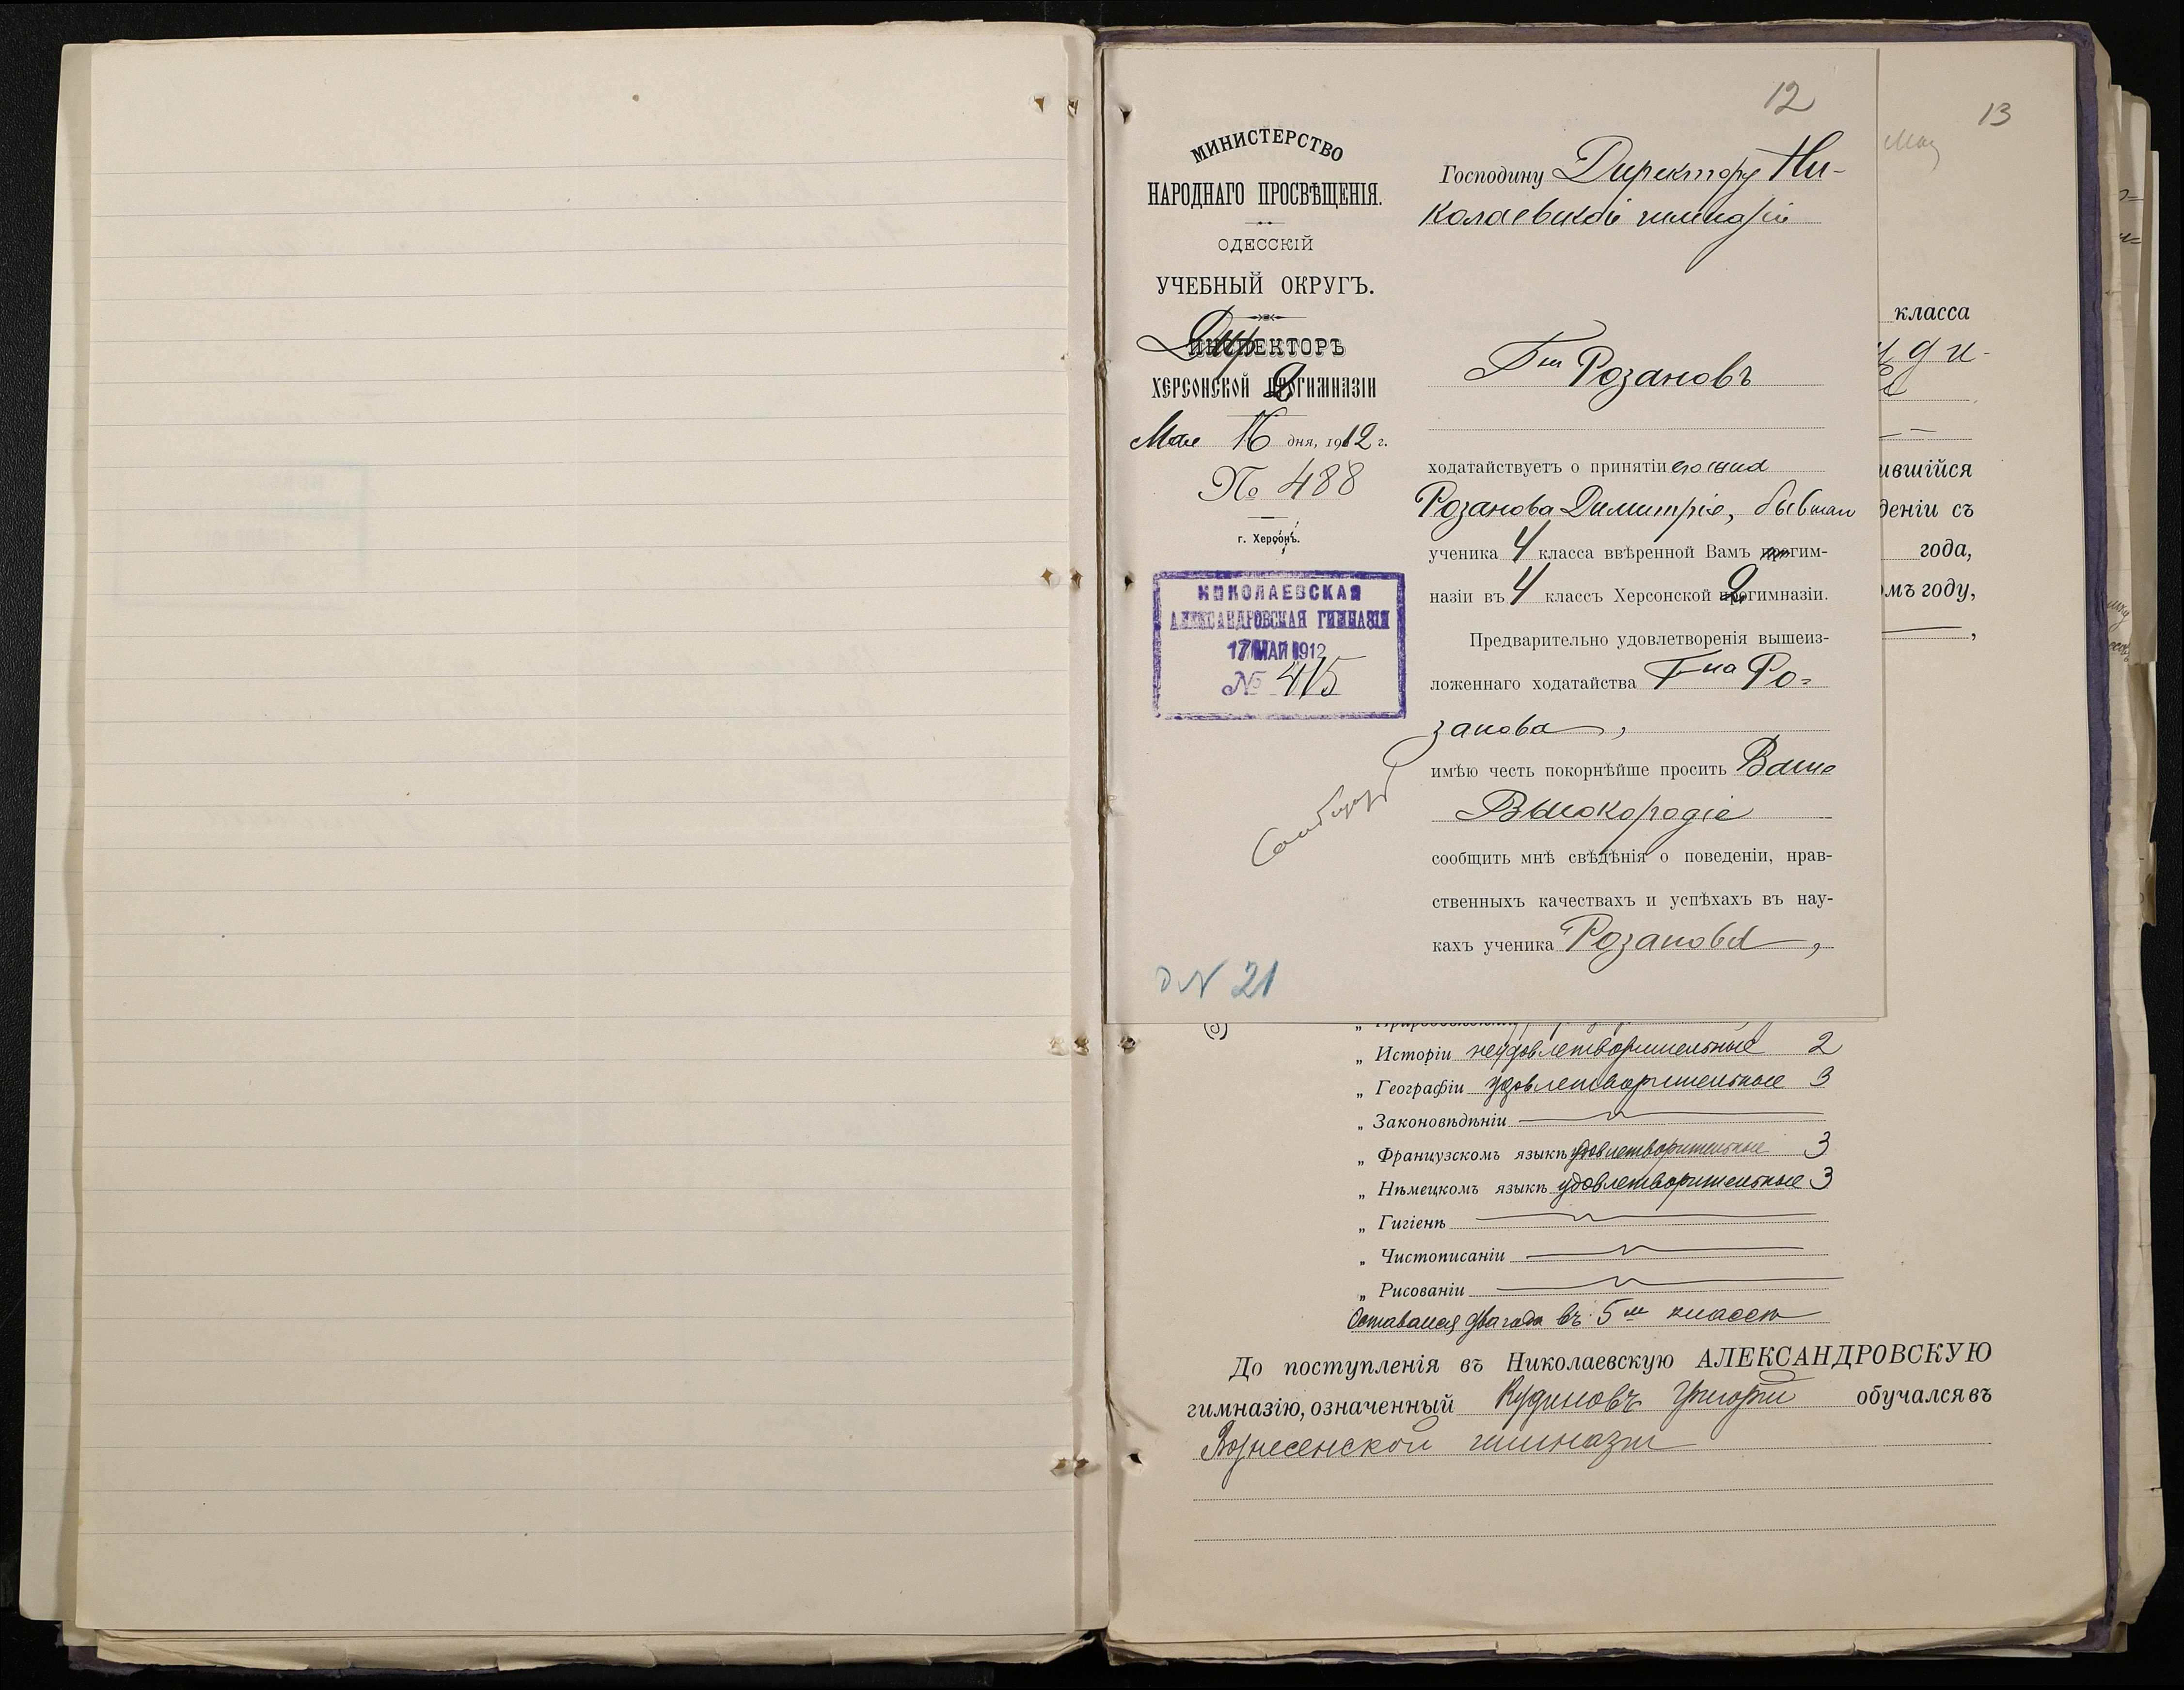 12
МИНИСТЕРСТВО
НАРОДНАГО ПРОСВѢЩЕНІЯ.
ОДЕССКІЙ
УЧЕБНЫЙ ОКРУГЪ.
Дир
ИНСПЕКТОРЪ
ХЕРСОНСКОЙ 2 ПРОГИМНАЗІИ
Мая 16 дня, 1912 г.
№ 488
г. Херсонъ.
НИКОЛАЕВСКАЯ
АЛЕКСАНДРОВСКАЯ ГИМНАЗІЯ
17 МАЙ 1912
№ 415
д N 21
Господину Директору Ни-
колаевской гимназіи
Г-нъ Розановъ
ходатайствуетъ о принятіи его сына
Розанова Димитрія, бывшаго
ученика 4 класса ввѣренной Вамъ прогим-
назіи въ 4 классъ Херсонской 2 прогимназіи.
Предварительно удовлетворенія вышеиз-
ложеннаго ходатайства Г-на Ро=
занова,
имѣю честь покорнѣйше просить Ваше
Высокородіе
сообщить мнѣ свѣдѣнія о поведеніи, нрав-
ственныхъ качествахъ и успѣхахъ въ нау-
кахъ ученика Розанова,
13
класса
ившійся
деніи съ
года,
омъ году,
„ Исторіи неудовлетворительные 2
„ Географіи удовлетворительные 3
„ Законовѣдѣніи
„ Французскомъ языкѣ удовлетворительные 3
„ Нѣмецкомъ языкѣ удовлетворительные 3
„ Гигіенѣ
„ Чистописаніи
„ Рисованіи
Оставался два года въ 5-мъ классѣ
До поступленія въ Николаевскую АЛЕКСАНДРОВСКУЮ
гимназію, означенный Кудиновъ Григорій обучался въ
Вознесенской гимназіи